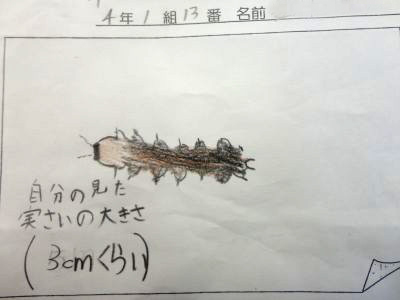 4年1組13番 名前
自分の見た
実さいの大きさ
(3cmくらい)